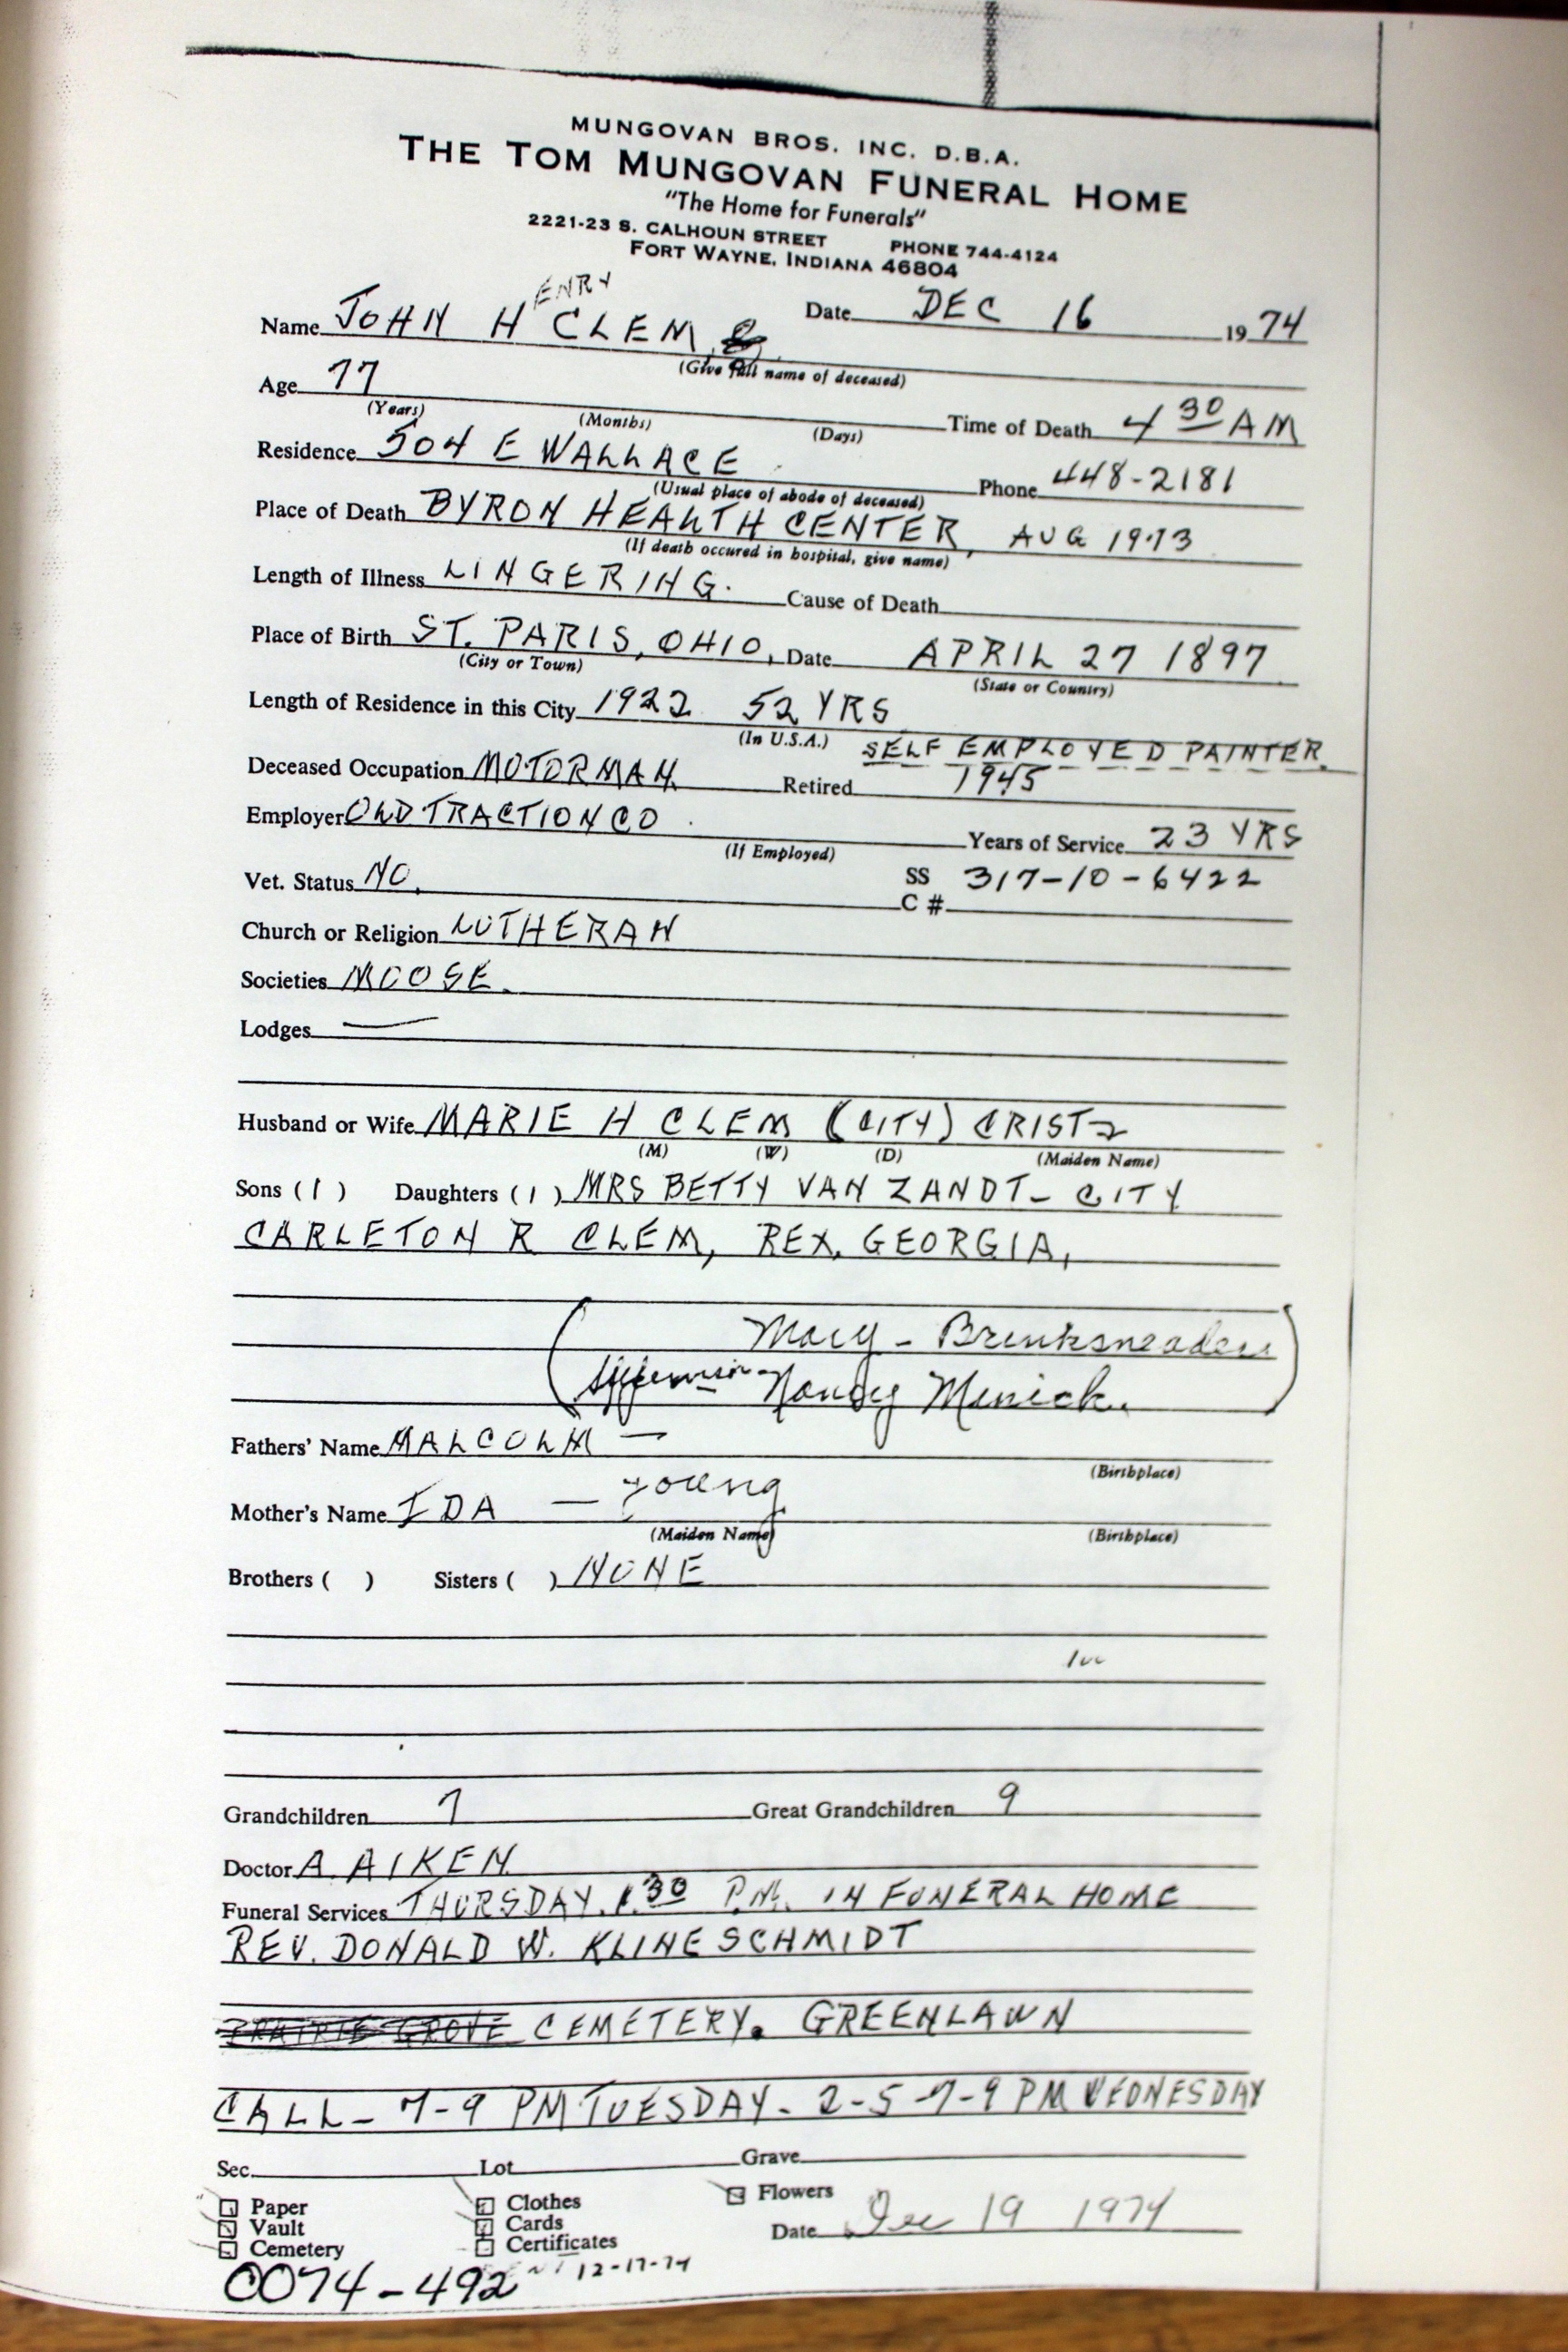 MUNGOVAN BROS. INC. D.B.A.
THE TOM MUNGOVAN FUNERAL HOME
"The Home for Funerals"
2221-23 S. CALHOUN STREET PHONE 744-4124
FORT WAYNE, INDIANA 46804
Name JOHN HENRY CLEM Date DEC 16 1974
(Give full name of deceased)
Age 77 Time of Death 4 30 AM
(Years) (Months) (Days)
Residence 504 E WALLACE Phone 448-2181
(Usual place of abode of deceased)
Place of Death BYRON HEALTH CENTER, AUG 1973
(If death occured in hospital, give name)
Length of Illness LINGERING. Cause of Death
Place of Birth ST. PARIS, OHIO, Date APRIL 27 1897
(City or Town) (State or Country)
Length of Residence in this City 1922 52 YRS
(In U.S.A.) SELF EMPLOYED PAINTER.
Deceased Occupation MOTORMAN Retired 1945
Employer OLD TRACTION CO Years of Service 23 YRS
(If Employed)
Vet. Status NO. SS 317-10-6422
C #
Church or Religion LUTHERAN
Societies MOOSE.
Lodges —
Husband or Wife MARIE H CLEM (CITY) CRIST
(M) (W) (D) (Maiden Name)
Sons (1) Daughters (1) MRS BETTY VAN ZANDT - CITY
CARLETON R CLEM, REX, GEORGIA,
Nancy Minick.
Fathers' Name MALCOLM —
(Birthplace)
Mother's Name IDA — Young
(Maiden Name) (Birthplace)
Brothers ( ) Sisters ( ) NONE
Grandchildren 7 Great Grandchildren 9
Doctor A. AIKEN
Funeral Services THURSDAY. 1 30 P.M. IN FUNERAL HOME
REV. DONALD W. KLINESCHMIDT
PRAIRIE GROVE CEMETERY. GREENLAWN
CALL - 7-9 PM TUESDAY - 2-5-7-9 PM WEDNESDAY
Sec. Lot Grave
Paper Clothes Flowers
Vault Cards Date Dec 19 1974
Cemetery Certificates
0074-492 12-17-74